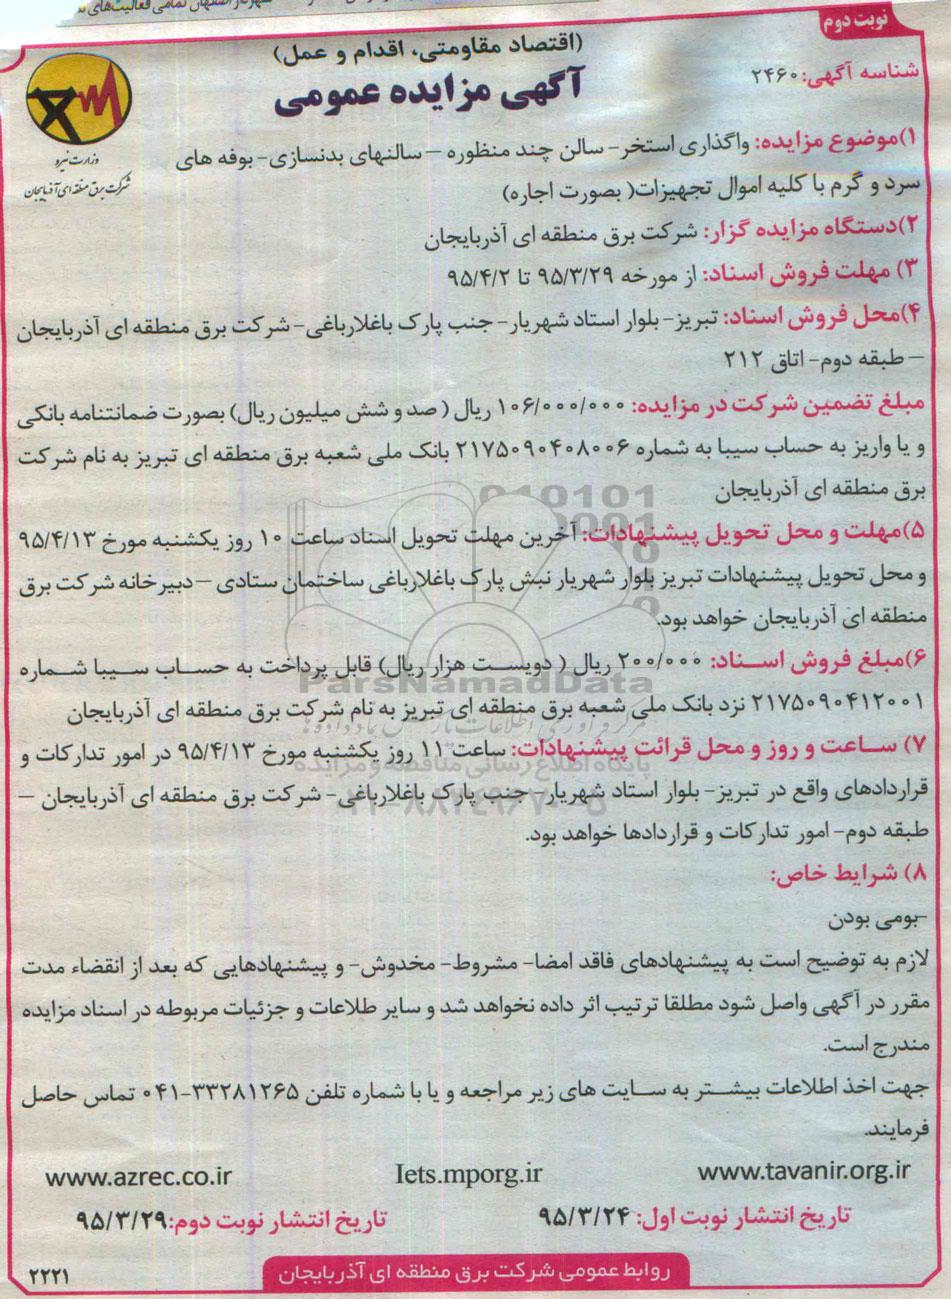 نوبت دوم
(اقتصاد مقاومتی، اقدام و عمل)
شناسه آگهی: ۲۴۶۰
آگهی مزایده عمومی
وزارت نیرو
شرکت برق منطقه ای آذربایجان
۱)موضوع مزایده: واگذاری استخر- سالن چند منظوره –سالنهای بدنسازی- بوفه های
سرد و گرم با کلیه اموال تجهیزات( بصورت اجاره)
۲)دستگاه مزایده گزار: شرکت برق منطقه ای آذربایجان
۳) مهلت فروش اسناد: از مورخه ۹۵/۳/۲۹ تا ۹۵/۴/۲
۴)محل فروش اسناد: تبریز- بلوار استاد شهریار- جنب پارک باغلارباغی- شرکت برق منطقه ای آذربایجان
– طبقه دوم- اتاق ۲۱۲
مبلغ تضمین شرکت در مزایده: ۱۰۶/۰۰۰/۰۰۰ ریال ( صد و شش میلیون ریال) بصورت ضمانتنامه بانکی
و یا واریز به حساب سیبا به شماره ۲۱۷۵۰۹۰۴۰۸۰۰۶ بانک ملی شعبه برق منطقه ای تبریز به نام شرکت
برق منطقه ای آذربایجان
۵)مهلت و محل تحویل پیشنهادات: آخرین مهلت تحویل اسناد ساعت ۱۰ روز یکشنبه مورخ ۹۵/۴/۱۳
و محل تحویل پیشنهادات تبریز بلوار شهریار نبش پارک باغلارباغی ساختمان ستادی –دبیرخانه شرکت برق
منطقه ای آذربایجان خواهد بود.
۶)مبلغ فروش اسناد: ۲۰۰/۰۰۰ ریال ( دویست هزار ریال) قابل پرداخت به حساب سیبا شماره
ParsNamadData
۲۱۷۵۰۹۰۴۱۲۰۰۱ نزد بانک ملی شعبه برق منطقه ای تبریز به نام شرکت برق منطقه ای آذربایجان
۷) ساعت و روز و محل قرائت پیشنهادات: ساعت ۱۱ روز یکشنبه مورخ ۹۵/۴/۱۳ در امور تدارکات و
پایگاه اطلاع رسانی مناقصه و مزایده
قراردادهای واقع در تبریز- بلوار استاد شهریار- جنب پارک باغلارباغی- شرکت برق منطقه ای آذربایجان –
طبقه دوم- امور تدارکات و قراردادها خواهد بود.
۸) شرایط خاص:
-بومی بودن
لازم به توضیح است به پیشنهادهای فاقد امضا- مشروط- مخدوش- و پیشنهادهایی که بعد از انقضاء مدت
مقرر در آگهی واصل شود مطلقا ترتیب اثر داده نخواهد شد و سایر طلاعات و جزئیات مربوطه در اسناد مزایده
مندرج است.
جهت اخذ اطلاعات بیشتر به سایت های زیر مراجعه و یا با شماره تلفن ۳۳۲۸۱۲۶۵-۰۴۱ تماس حاصل
فرمایند.
www.tavanir.org.ir
Iets.mporg.ir
www.azrec.co.ir
تاریخ انتشار نوبت اول: ۹۵/۳/۲۴
تاریخ انتشار نوبت دوم:۹۵/۳/۲۹
روابط عمومی شرکت برق منطقه ای آذربایجان
۲۲۲۱